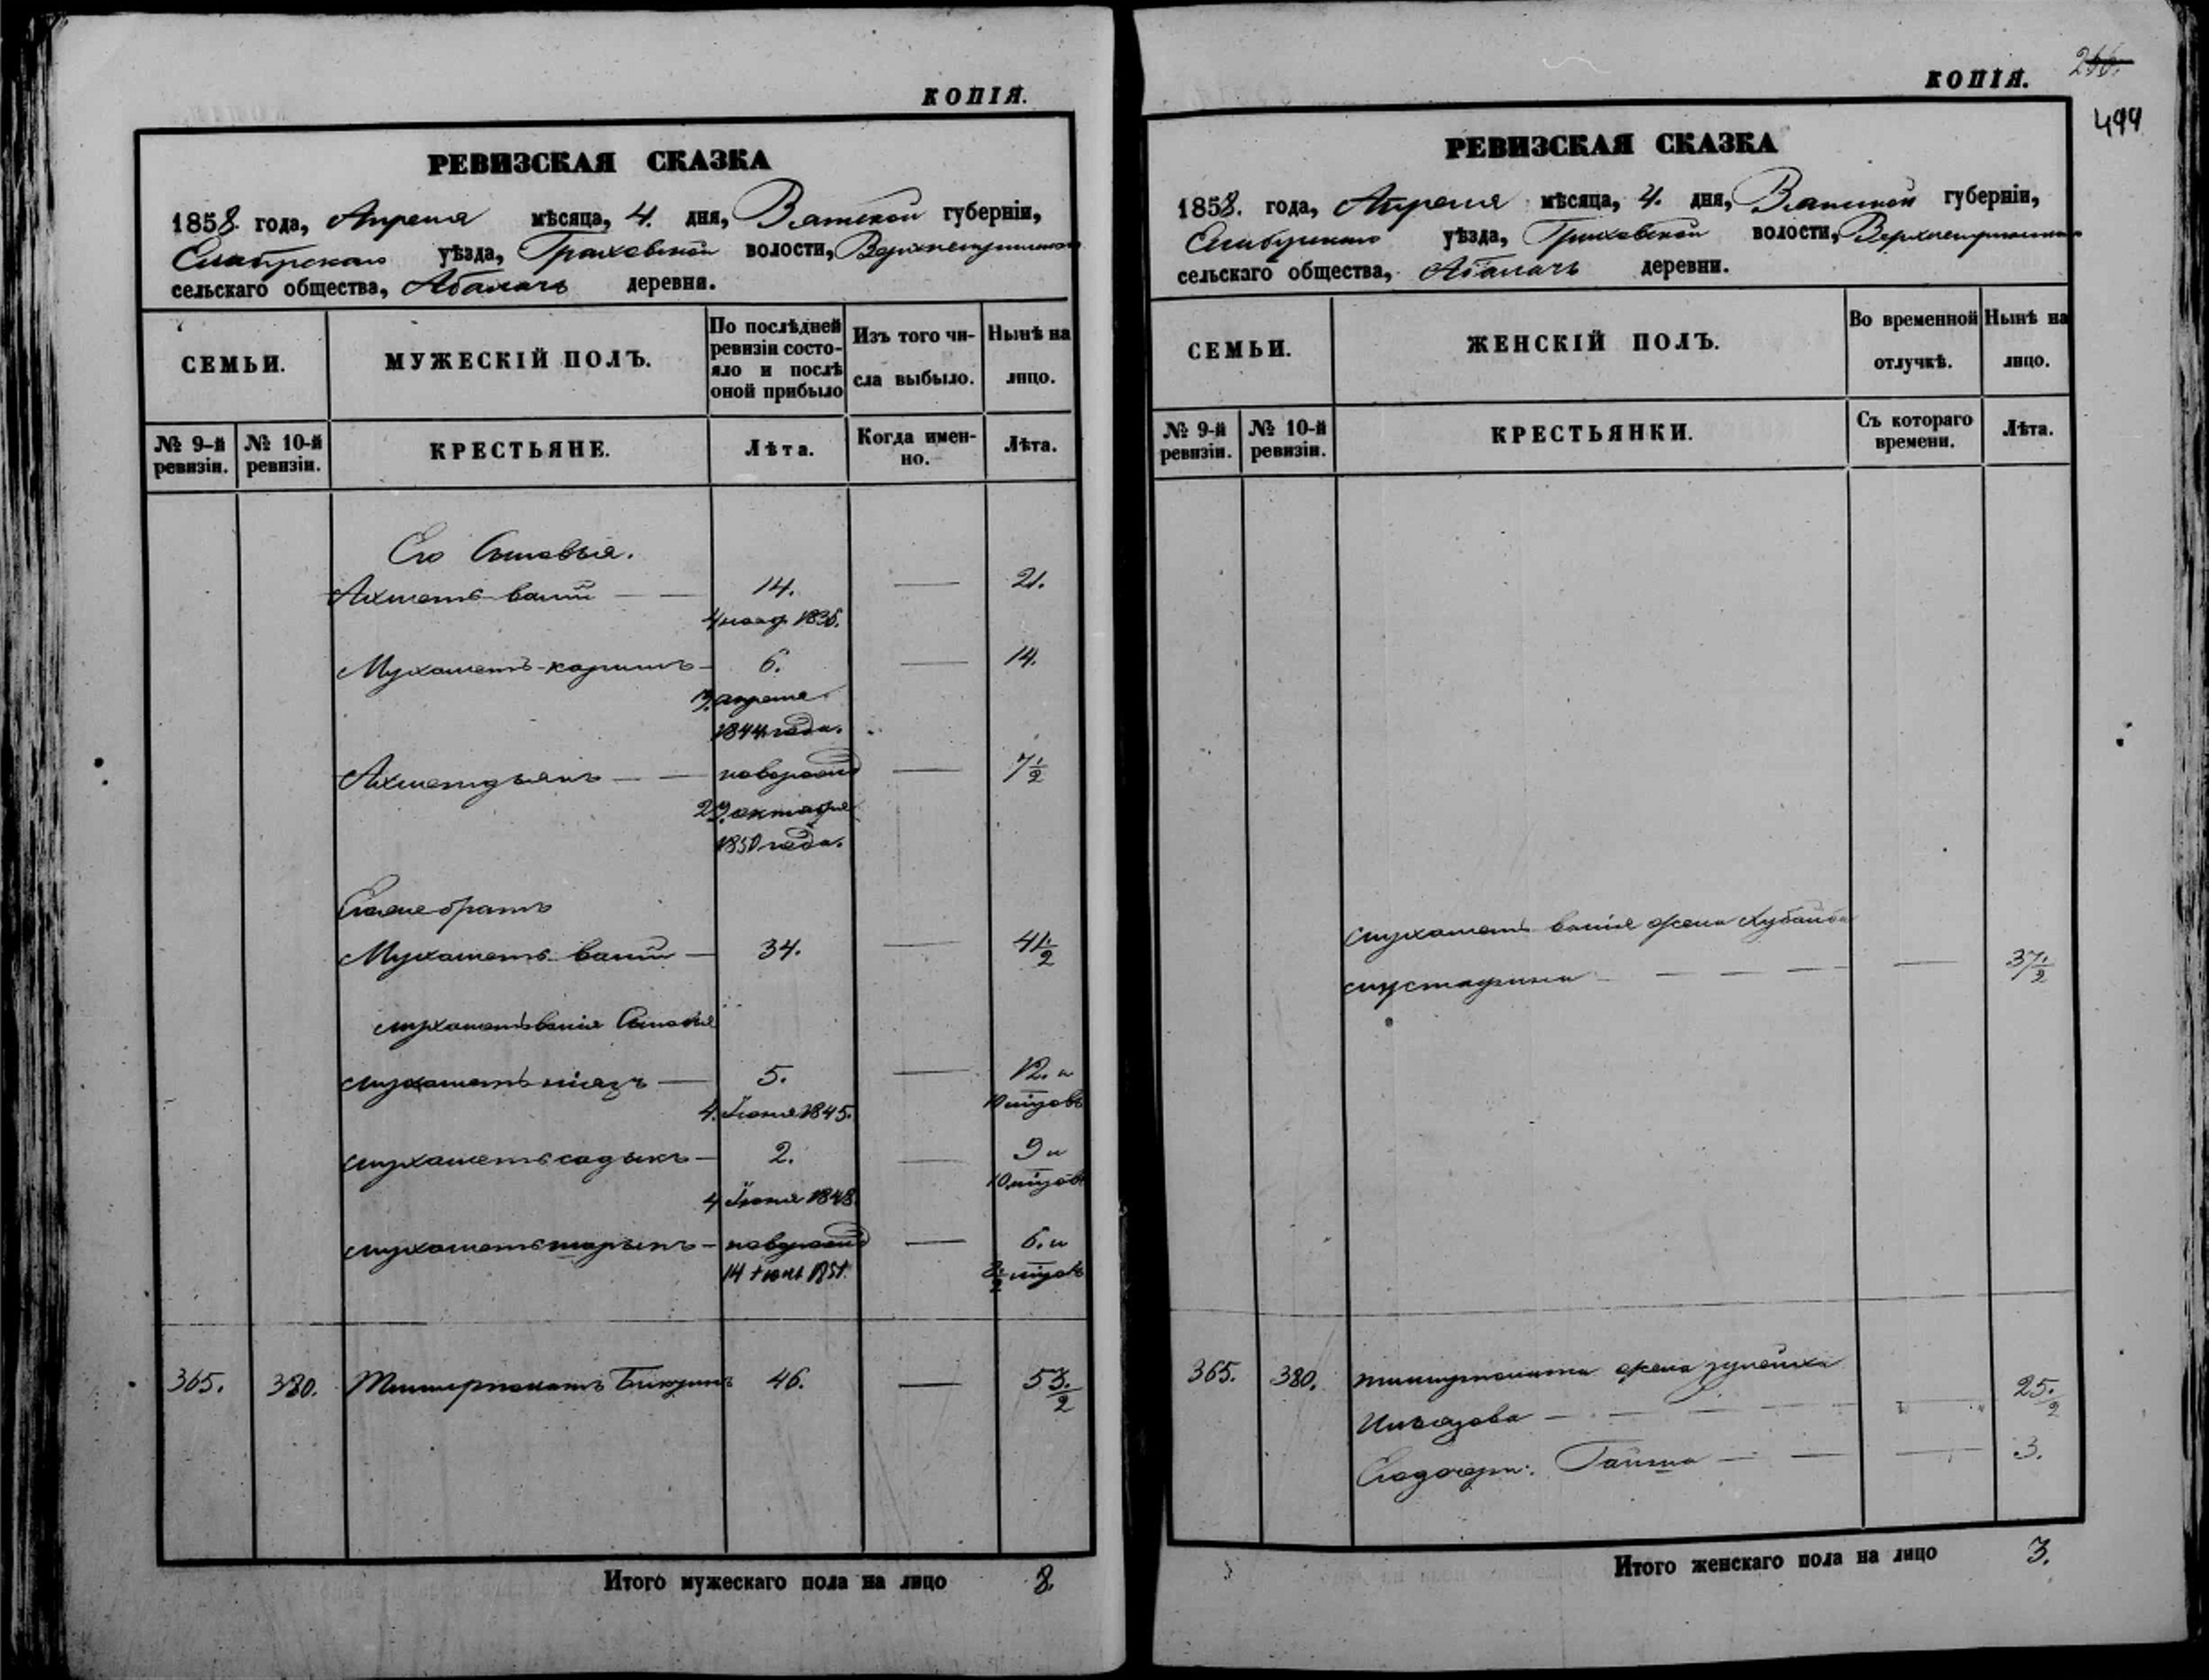 КОПІЯ.
РЕВИЗСКАЯ СКАЗКА
1858 года, Апреля мѣсяца, 4. дня, Вятской губерніи,
Елабужскаго уѣзда, Граховской волости,
сельскаго общества, Абалачь деревня.
СЕМЬИ.
МУЖЕСКІЙ ПОЛЪ.
По послѣдней ревизіи состо-
яло и послѣ оной прибыло
Изъ того чи-
сла выбыло.
Нынѣ на
лицо.
№ 9-й ревизіи.
№ 10-й ревизіи.
КРЕСТЬЯНЕ.
Лѣта.
Когда имен-
но.
Лѣта.
Его Сыновья.
Ахметь вали — — 14. — 21.
4 1836.
Мухаметъ-каримъ — 6. — 14.
3 апреля
1844 года.
Ахметдзянъ — — новорожд — 7 1/2
29 октября
1850 года.
братъ
Мухаметь вали — 34. — 41 1/2
мухаметь валія Сыновья
мухаметь ніязъ — 5. — 12. и
4. Іюня 1845. 10 мцовъ
мухаметь садыкъ — 2. — 9 и
4 Іюня 1848. 10 мцовъ
мухаметь шарыпъ — новорожд — 6. и
14 1851. мцовъ
365. 380. Бикзинъ 46. — 53. 1/2
Итого мужескаго пола на лицо 8.
КОПІЯ.
499
РЕВИЗСКАЯ СКАЗКА
1858. года, Апреля мѣсяца, 4. дня, Вятской губерніи,
Елабужскаго уѣзда, Граховской волости,
сельскаго общества, Абалачь деревни.
СЕМЬИ.
ЖЕНСКІЙ ПОЛЪ.
Во временной
отлучкѣ.
Нынѣ на
лицо.
№ 9-й ревизіи.
№ 10-й ревизіи.
КРЕСТЬЯНКИ.
Съ котораго
времени.
Лѣта.
мухаметь валія жена Хубайба
мустафина — — — — 37 1/2
365. 380. жена зулейха
Ильязова — — — — 25. 1/2
Его дочери: Гайша — — — 3.
Итого женскаго пола на лицо 3.